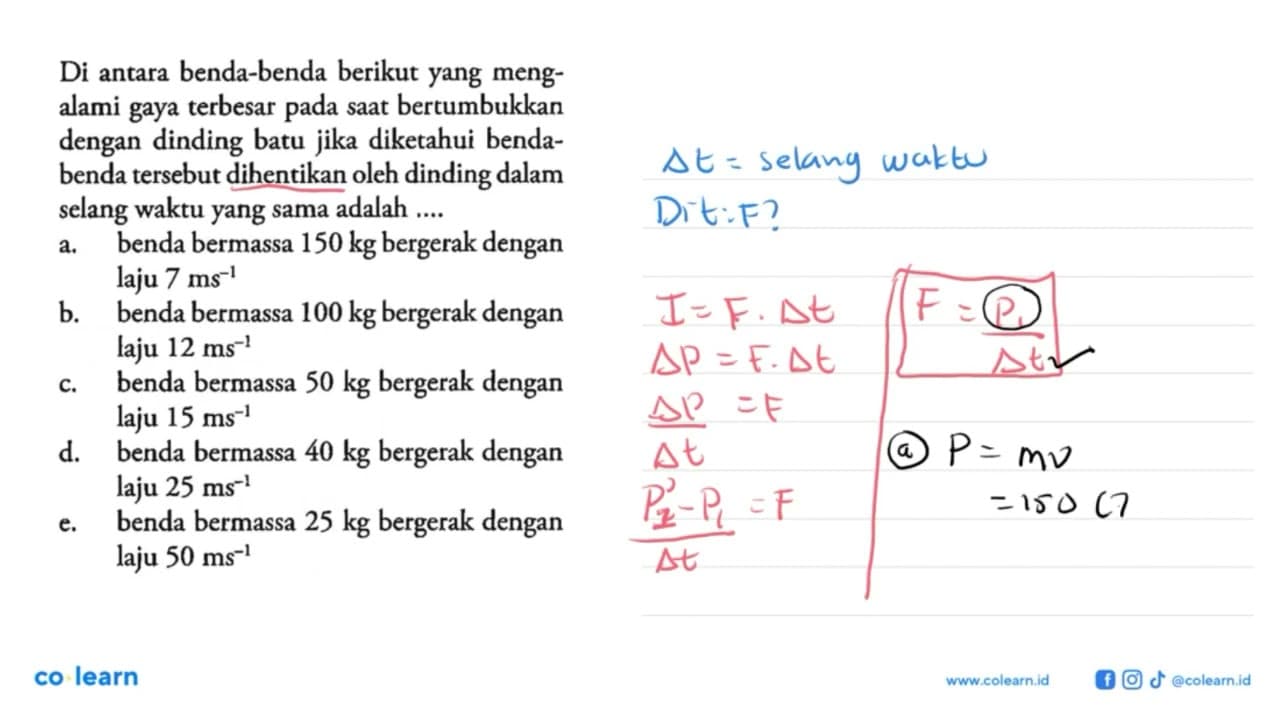 Di antara benda-benda berikut yang meng-
alami gaya terbesar pada saat bertumbukkan
dengan dinding batu jika diketahui benda-
benda tersebut dihentikan oleh dinding dalam
selang waktu yang sama adalah ....
a. benda bermassa 150 kg bergerak dengan
laju 7 ms⁻¹
b. benda bermassa 100 kg bergerak dengan
laju 12 ms⁻¹
c. benda bermassa 50 kg bergerak dengan
laju 15 ms⁻¹
d. benda bermassa 40 kg bergerak dengan
laju 25 ms⁻¹
e. benda bermassa 25 kg bergerak dengan
laju 50 ms⁻¹
Δt = selang waktu
Dit: F?
I = F. Δt
ΔP = F. Δt
ΔP = F
Δt
P₂ - P₁ = F
Δt
F = P₁
Δt
a P = mv
= 150 (7
co learn
www.colearn.id
@colearn.id